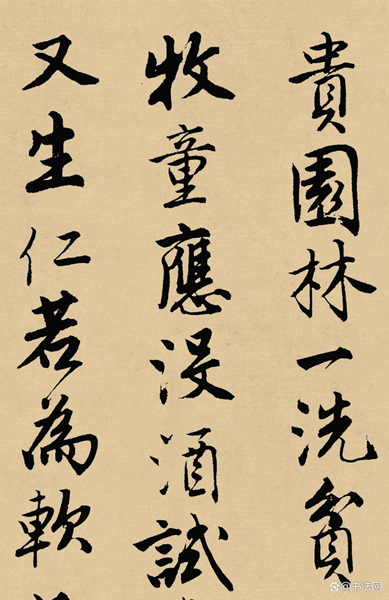 貴園林一洗貧
牧童應没酒試
又生仁若為軟
书法网